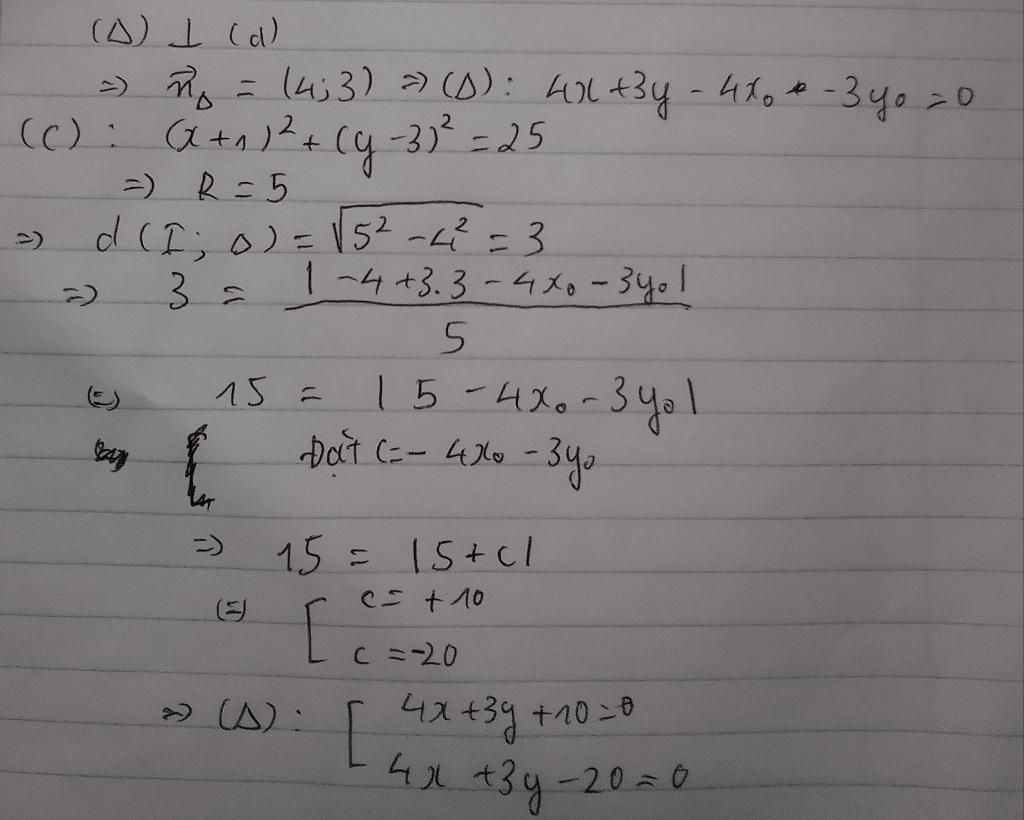 (Δ) ⊥ (d)
=> n⃗_Δ = (4;3) => (Δ): 4x + 3y - 4x₀ - 3y₀ = 0
(C): (x+1)² + (y-3)² = 25
=> R = 5
=> d(I; Δ) = √(5² - 4²) = 3
=> 3 = |-4 + 3.3 - 4x₀ - 3y₀| / 5
(=) 15 = |5 - 4x₀ - 3y₀|
Đặt c = - 4x₀ - 3y₀
=> 15 = |5 + c|
(=) [ c = +10
c = -20
=> (Δ): [ 4x + 3y + 10 = 0
4x + 3y - 20 = 0